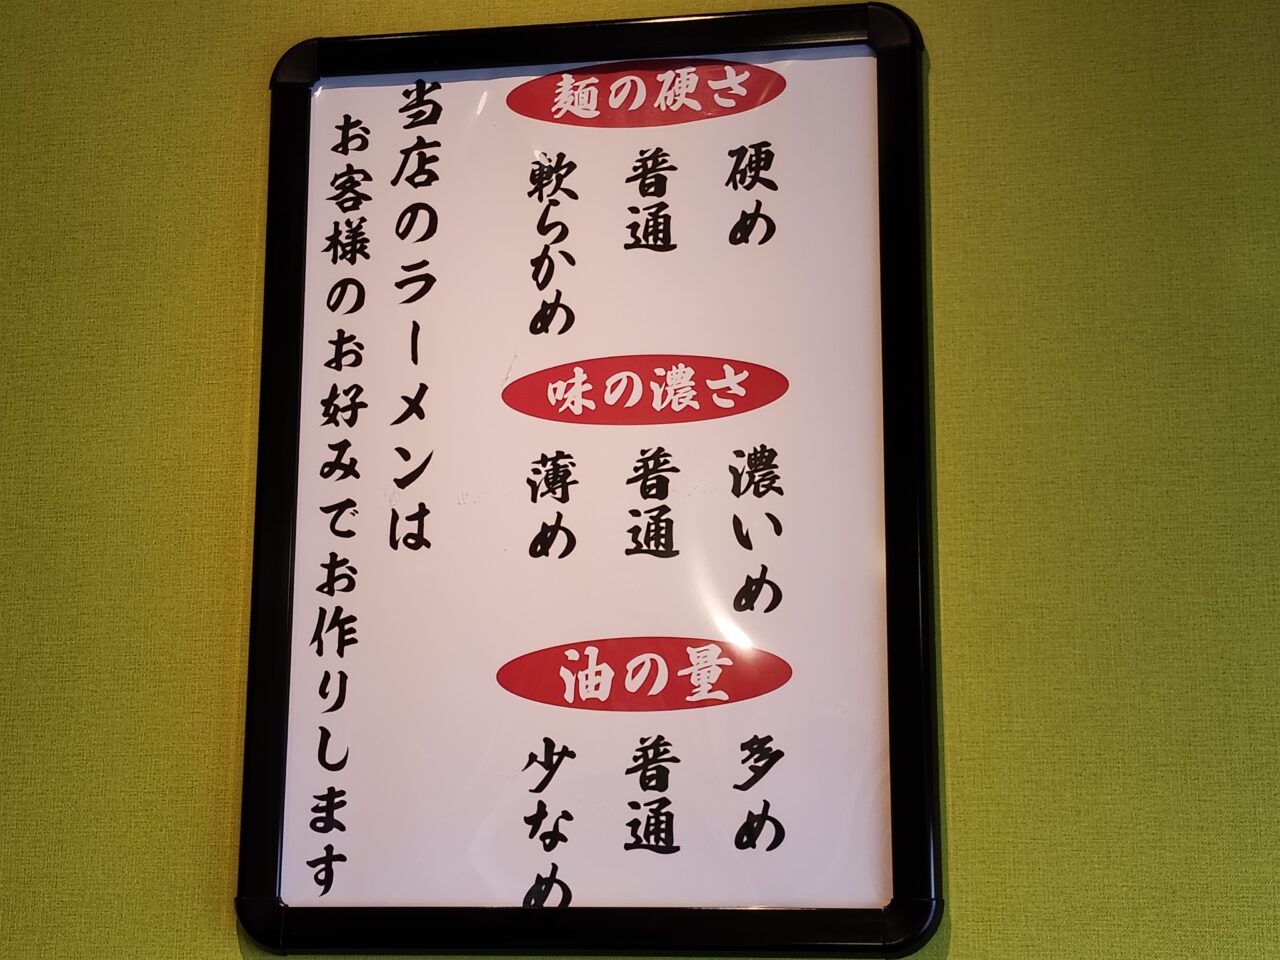 麺の硬さ
硬め
普通
軟らかめ
味の濃さ
濃いめ
普通
薄め
油の量
多め
普通
少なめ
当店のラーメンは
お客様のお好みでお作りします